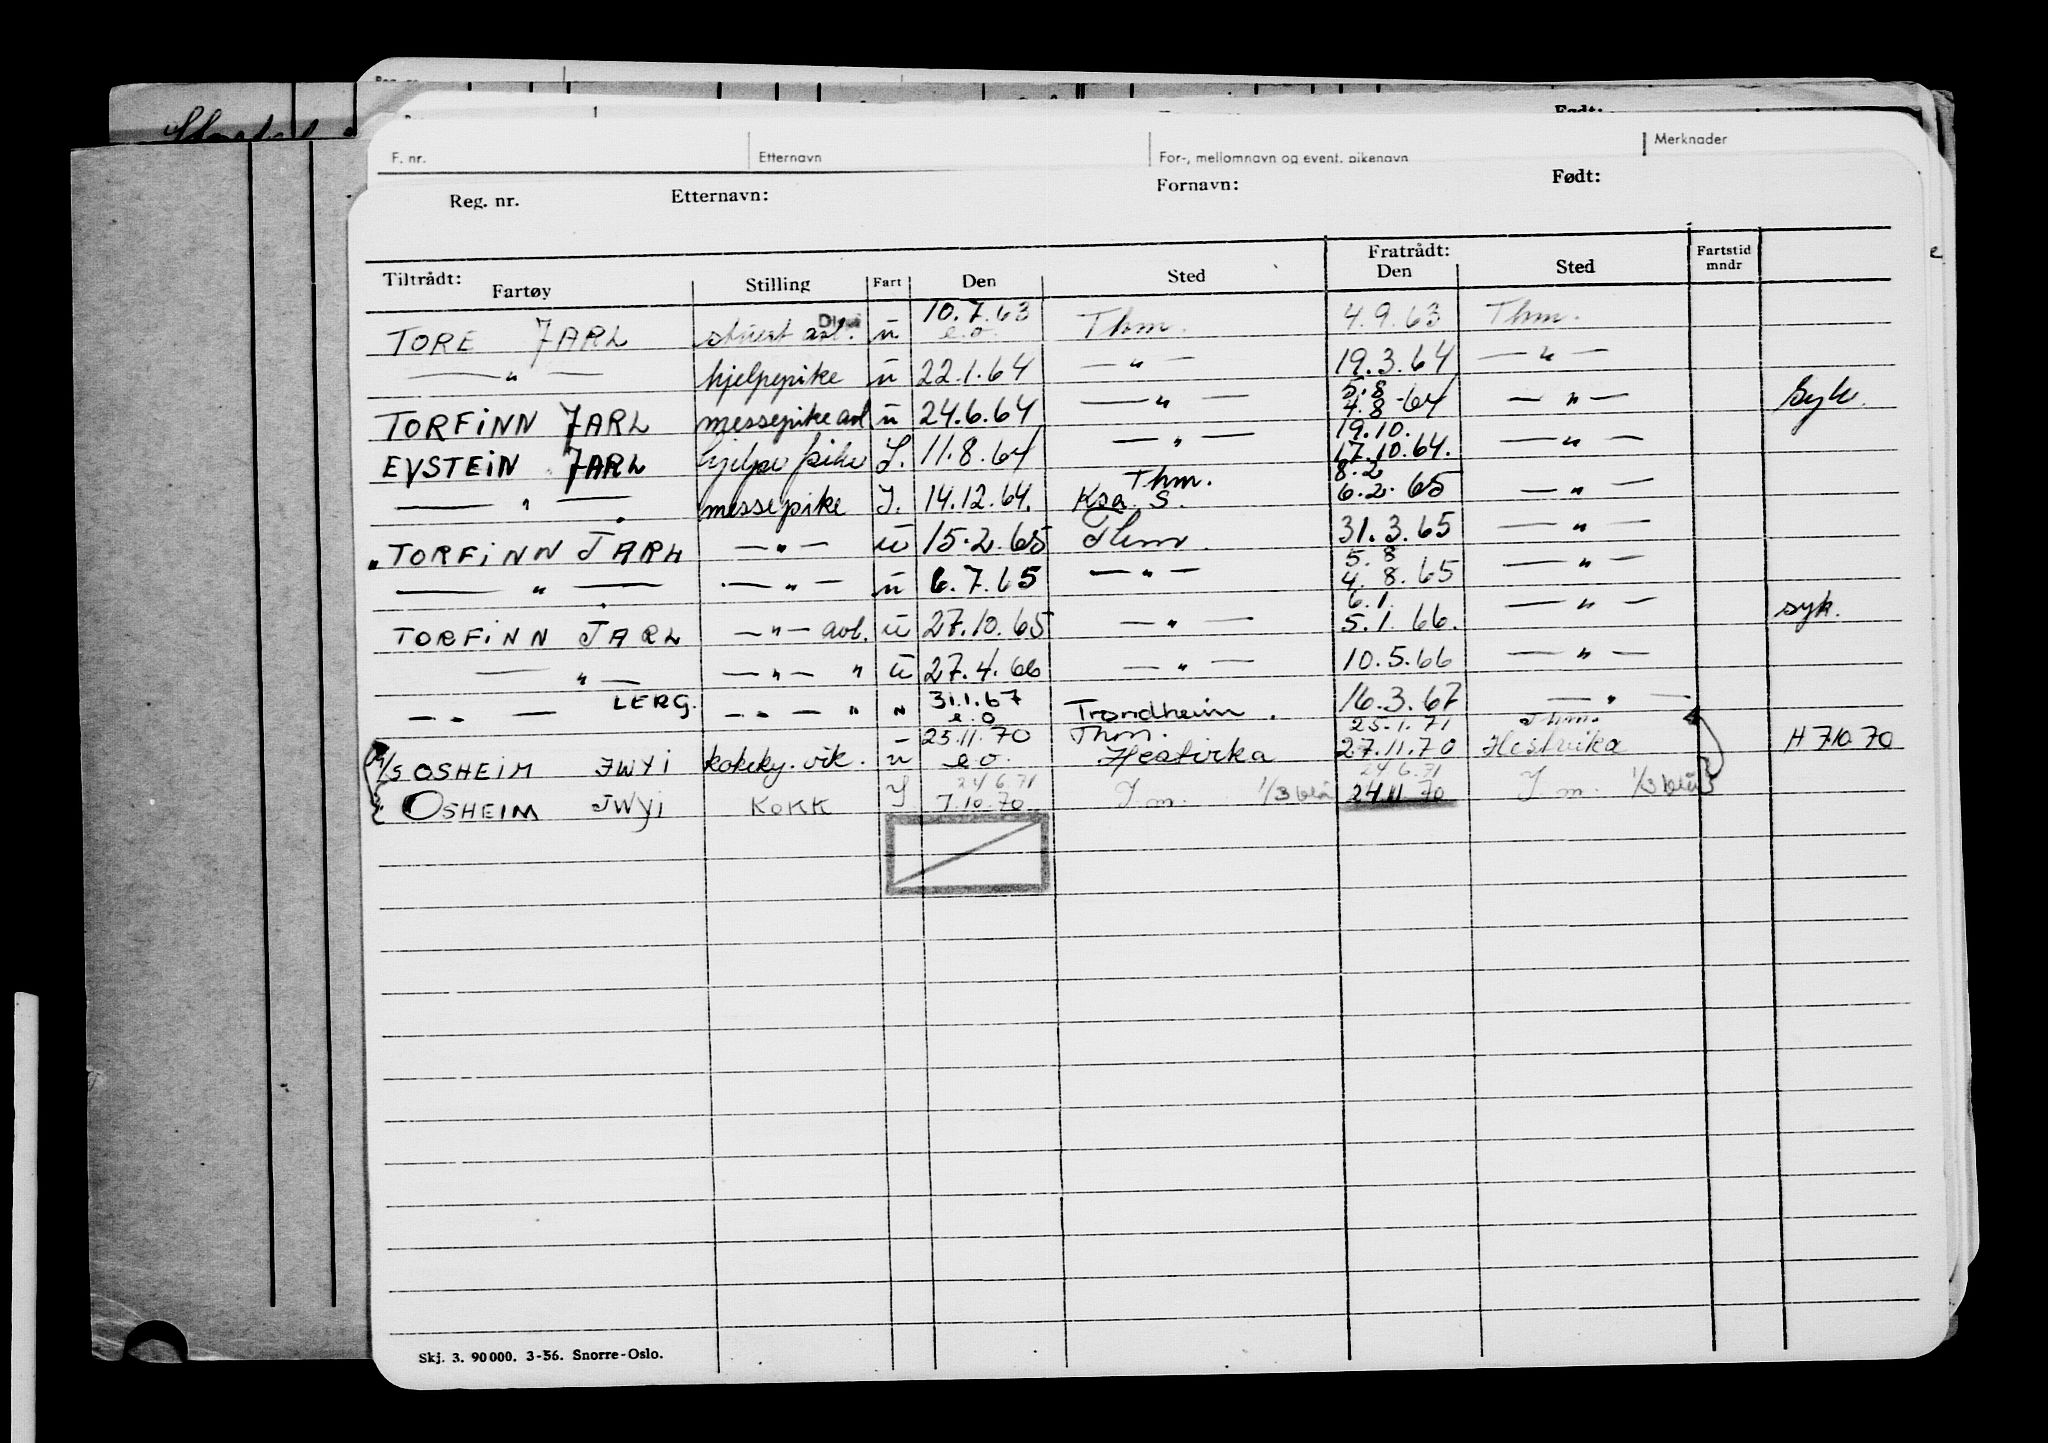 F. nr. Etternavn For-, mellomnavn og event. pikenavn Merknader
Reg. nr. Etternavn: Fornavn: Født:
Tiltrådt: Fratrådt:
Fartøy Stilling Fart Den Sted Den Sted Fartstid mndr
TORE JARL avl. u 10.7.63 e.o. Thm. 4.9.63 Thm.
— " — hjelpepike u 22.1.64 — " — 19.3.64 — " —
TORFINN JARL messepike avl u 24.6.64 — " — 5.8 4.8.64 — " — Syk.
EYSTEIN JARL hjelpe pike I. 11.8.64 — " — 19.10. 17.10.64. — " —
— " — messepike I. 14.12.64. Thm. Ksa. S. 8.2 6.2.65 — " —
TORFINN JARL — " — u 15.2.65 Thm. 31.3.65 — " —
— " — — " — u 6.7.65 — " — 5.8 4.8.65 — " —
TORFINN JARL — " — avl. u 27.10.65 — " — 6.1. 5.1.66. — " — syk.
— " — — " — " u 27.4.66 — " — 10.5.66 — " —
— " — LERG. — " — " " 31.1.67 e.o Trondheim. 16.3.67 — " —
M/S OSHEIM JWYI kokeky. vik. u 25.11.70 e.o. Thm. Hestvika 25.1.71 27.11.70 Thm. Hestvika H 7.10.70
OSHEIM JWYI KOKK I 24.6.71 7.10.70 I m. 1/3 blå 24.6.71 24.11.70 I m. 1/3 blå
Skj. 3. 90 000. 3-56. Snorre-Oslo.